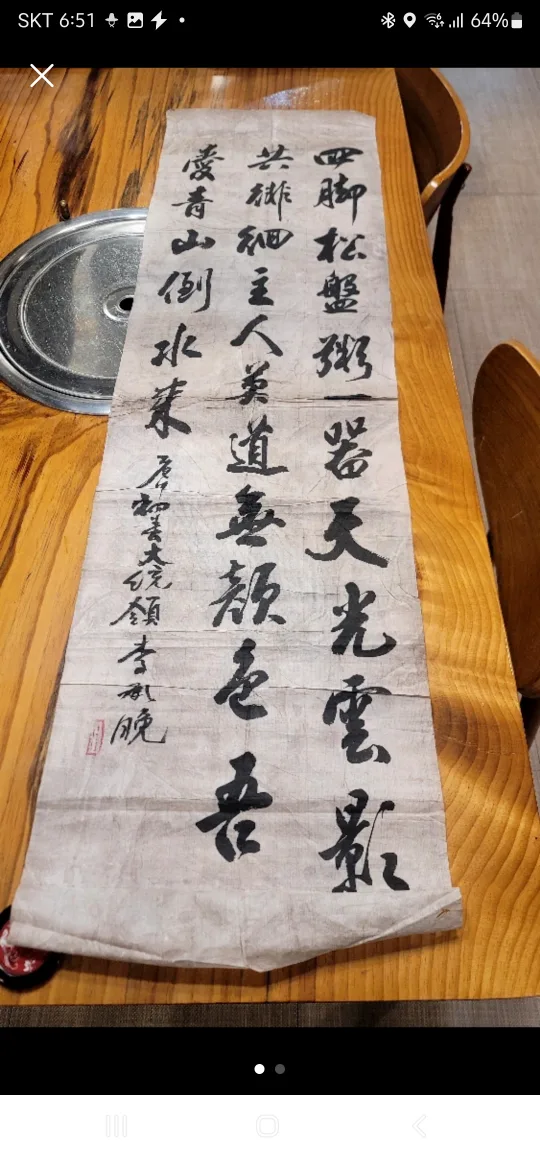 SKT 6:51 64%
四脚松盤粥一器天光雲影
共徘徊主人莫道無顔色吾
愛青山倒水来
大統領李承晩